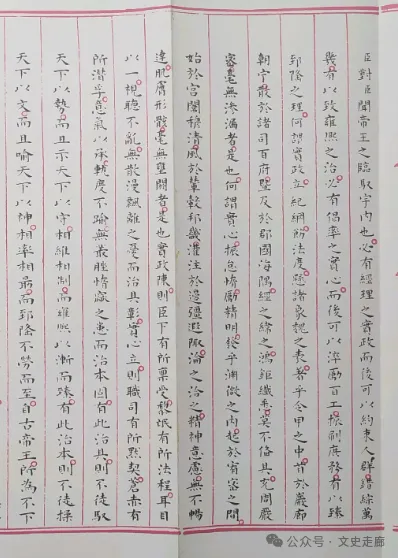 臣對臣聞帝王之臨馭宇内也必有經理之實政而後可以約束人群錯綜萬
幾有以致雍熙之治必有倡率之實心而後可以淬勵百工振刷庶務有以臻
郅隆之理何謂實政立紀綱飭法度懸諸象魏之表著乎令甲之中首於巖廊
朝宁散於諸司百府暨及於郡國海隅經之緯之鴻鉅纖悉莫不備具充周嚴
密毫無滲漏者是也何謂實心振怠惰勵精明發乎淵微之内起於宥密之間
始於宮闈穆清風於輦轂邦畿灌注於邊疆遐陬淪之洽之精神意慮無不暢
達肌膚形骸毫無壅閼者是也實政陳則臣下有所稟受黎氓有所法程耳目
以一視聽不亂無散漫飄離之憂而治具彰實心立則職司有所默契蒼赤有
所潛孚意氣以承軌度不踰無叢脞惰窳之患而治本固有此治具則不徒馭
天下以勢而且示天下以守相維相制而雍熙以漸而臻有此治本則不徒操
天下以文而且喻天下以神相率相勗而郅隆不勞而至自古帝王所為不下
公众号·文史走廊